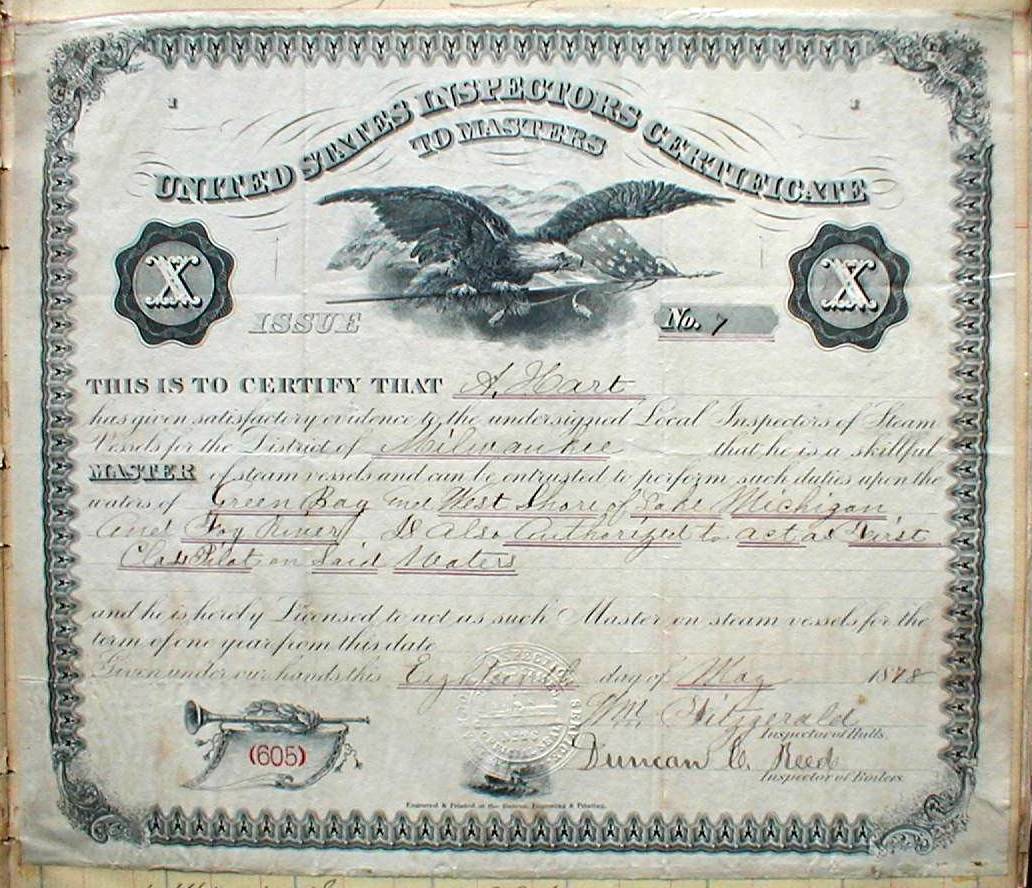 UNITED STATES INSPECTORS CERTIFICATE
TO MASTERS
X
X
ISSUE
No. 7
THIS IS TO CERTIFY THAT A. Hart
has given satisfactory evidence to the undersigned Local Inspectors of Steam
Vessels for the District of Milwaukie that he is a skillful
MASTER of steam vessels and can be entrusted to perform such duties upon the
waters of Green Bay and West Shore of Lake Michigan
and Fox River Is also Authorized to act as First
Class Pilot on Said Waters
and he is hereby Licensed to act as such Master on steam vessels for the
term of one year from this date
Given under our hands this Eighteenth day of May 1878
Wm Fitzgerald
Inspector of Hulls.
(605)
Duncan C. Reed
Inspector of Boilers.
Engraved & Printed at the Bureau, Engraving & Printing.